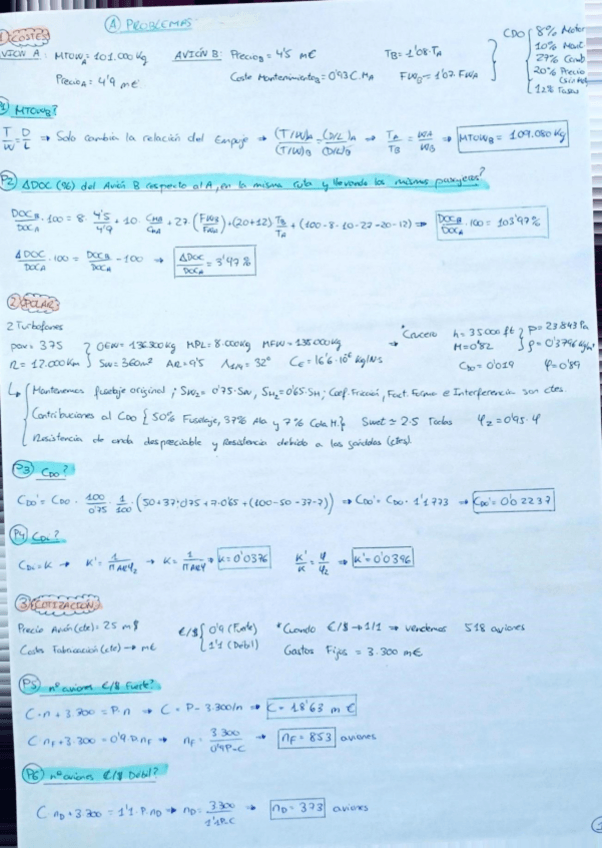 A PROBLEMAS
1 COSTES
AVIÓN A: MTOW_A = 101.000 kg AVIÓN B: Precio_B = 4'5 m€ T_B = 1'08·T_A
Precio_A = 4'9 m€ Coste Mantenimiento_B = 0'93 C.M_A FW_B = 1'07·FW_A
CDO { 8% Motor
10% Mant.
27% Comb
20% Precio
12% Tasas
P1 MTOW_B?
T/W = D/L ⇒ Solo cambia la relación del Empuje → (T/W)_A/(T/W)_B = (D/L)_A/(D/L)_B → T_A/T_B = W_A/W_B ⇒ MTOW_B = 109.080 kg
P2 ΔDOC (%) del Avión B respecto al A, en la misma ruta y llevando los mismos pasajeros?
DOC_B/DOC_A · 100 = 8 · 4'5/4'9 + 10 · CM_B/CM_A + 27 · (FW_B/FW_A) + (20+12) T_B/T_A + (100-8-10-27-20-12) ⇒ DOC_B/DOC_A · 100 = 103'97%
ΔDOC/DOC_A · 100 = DOC_B/DOC_A - 100 → ΔDOC/DOC_A = 3'97%
2 POLAR
2 Turbofanes
pax = 375 OEW = 136.300 kg MPL = 8.000 kg MFW = 135.000 kg → *Crucero h = 35000 ft p = 23843 Pa
R = 12.000 km Sw = 360 m² AR = 9'5 Λ1/4 = 32° C_E = 16'6·10⁻⁶ kg/Ns M = 0'82 ρ = 0'3796 kg/m³
C_D0 = 0'019 φ = 0'89
↳ Mantenemos fuselaje original; Sw₂ = 0'75·Sw, S_H₂ = 0'65·S_H; Coef. Fricción, Fact. Forma e Interferencia son ctes.
Contribuciones al C_D0 { 50% Fuselaje, 37% Ala y 7% Cola H.} Swet ≈ 2.5 Todas φ₂ = 0'95·φ
Resistencia de onda despreciable y Resistencia debido a las góndolas (ctes).
P3 C_D0?
C_D0' = C_D0 · 100/0'75 · 1/100 · (50 + 37·0'75 + 7·0'65 + (100-50-37-7)) ⇒ C_D0' = C_D0 · 1'1773 → C_D0' = 0'02237
P4 C_Di?
C_Di = K → K' = 1/πARφ₂ → K = 1/πARφ → K = 0'0376 K'/K = φ/φ₂ ⇒ K' = 0'0396
3 COTIZACIÓN
Precio Avión (cte) = 25 m$ €/$ { 0'9 (Fuerte) *Cuando €/$ → 1/1 ⇒ vendemos 518 aviones
Costes Fabricación (cte) → m€ 1'1 (Débil) Gastos Fijos = 3.300 m€
P5 nº aviones €/$ Fuerte?
C·n + 3.300 = P·n ⇒ C = P - 3.300/n ⇒ C = 18'63 m €
C n_F + 3.300 = 0'9·P·n_F ⇒ n_F = 3300/0'9P-C → n_F = 853 aviones
P6 nº aviones €/$ Débil?
C·n_D + 3.300 = 1'1·P·n_D ⇒ n_D = 3300/1'1P-C → n_D = 373 aviones
1